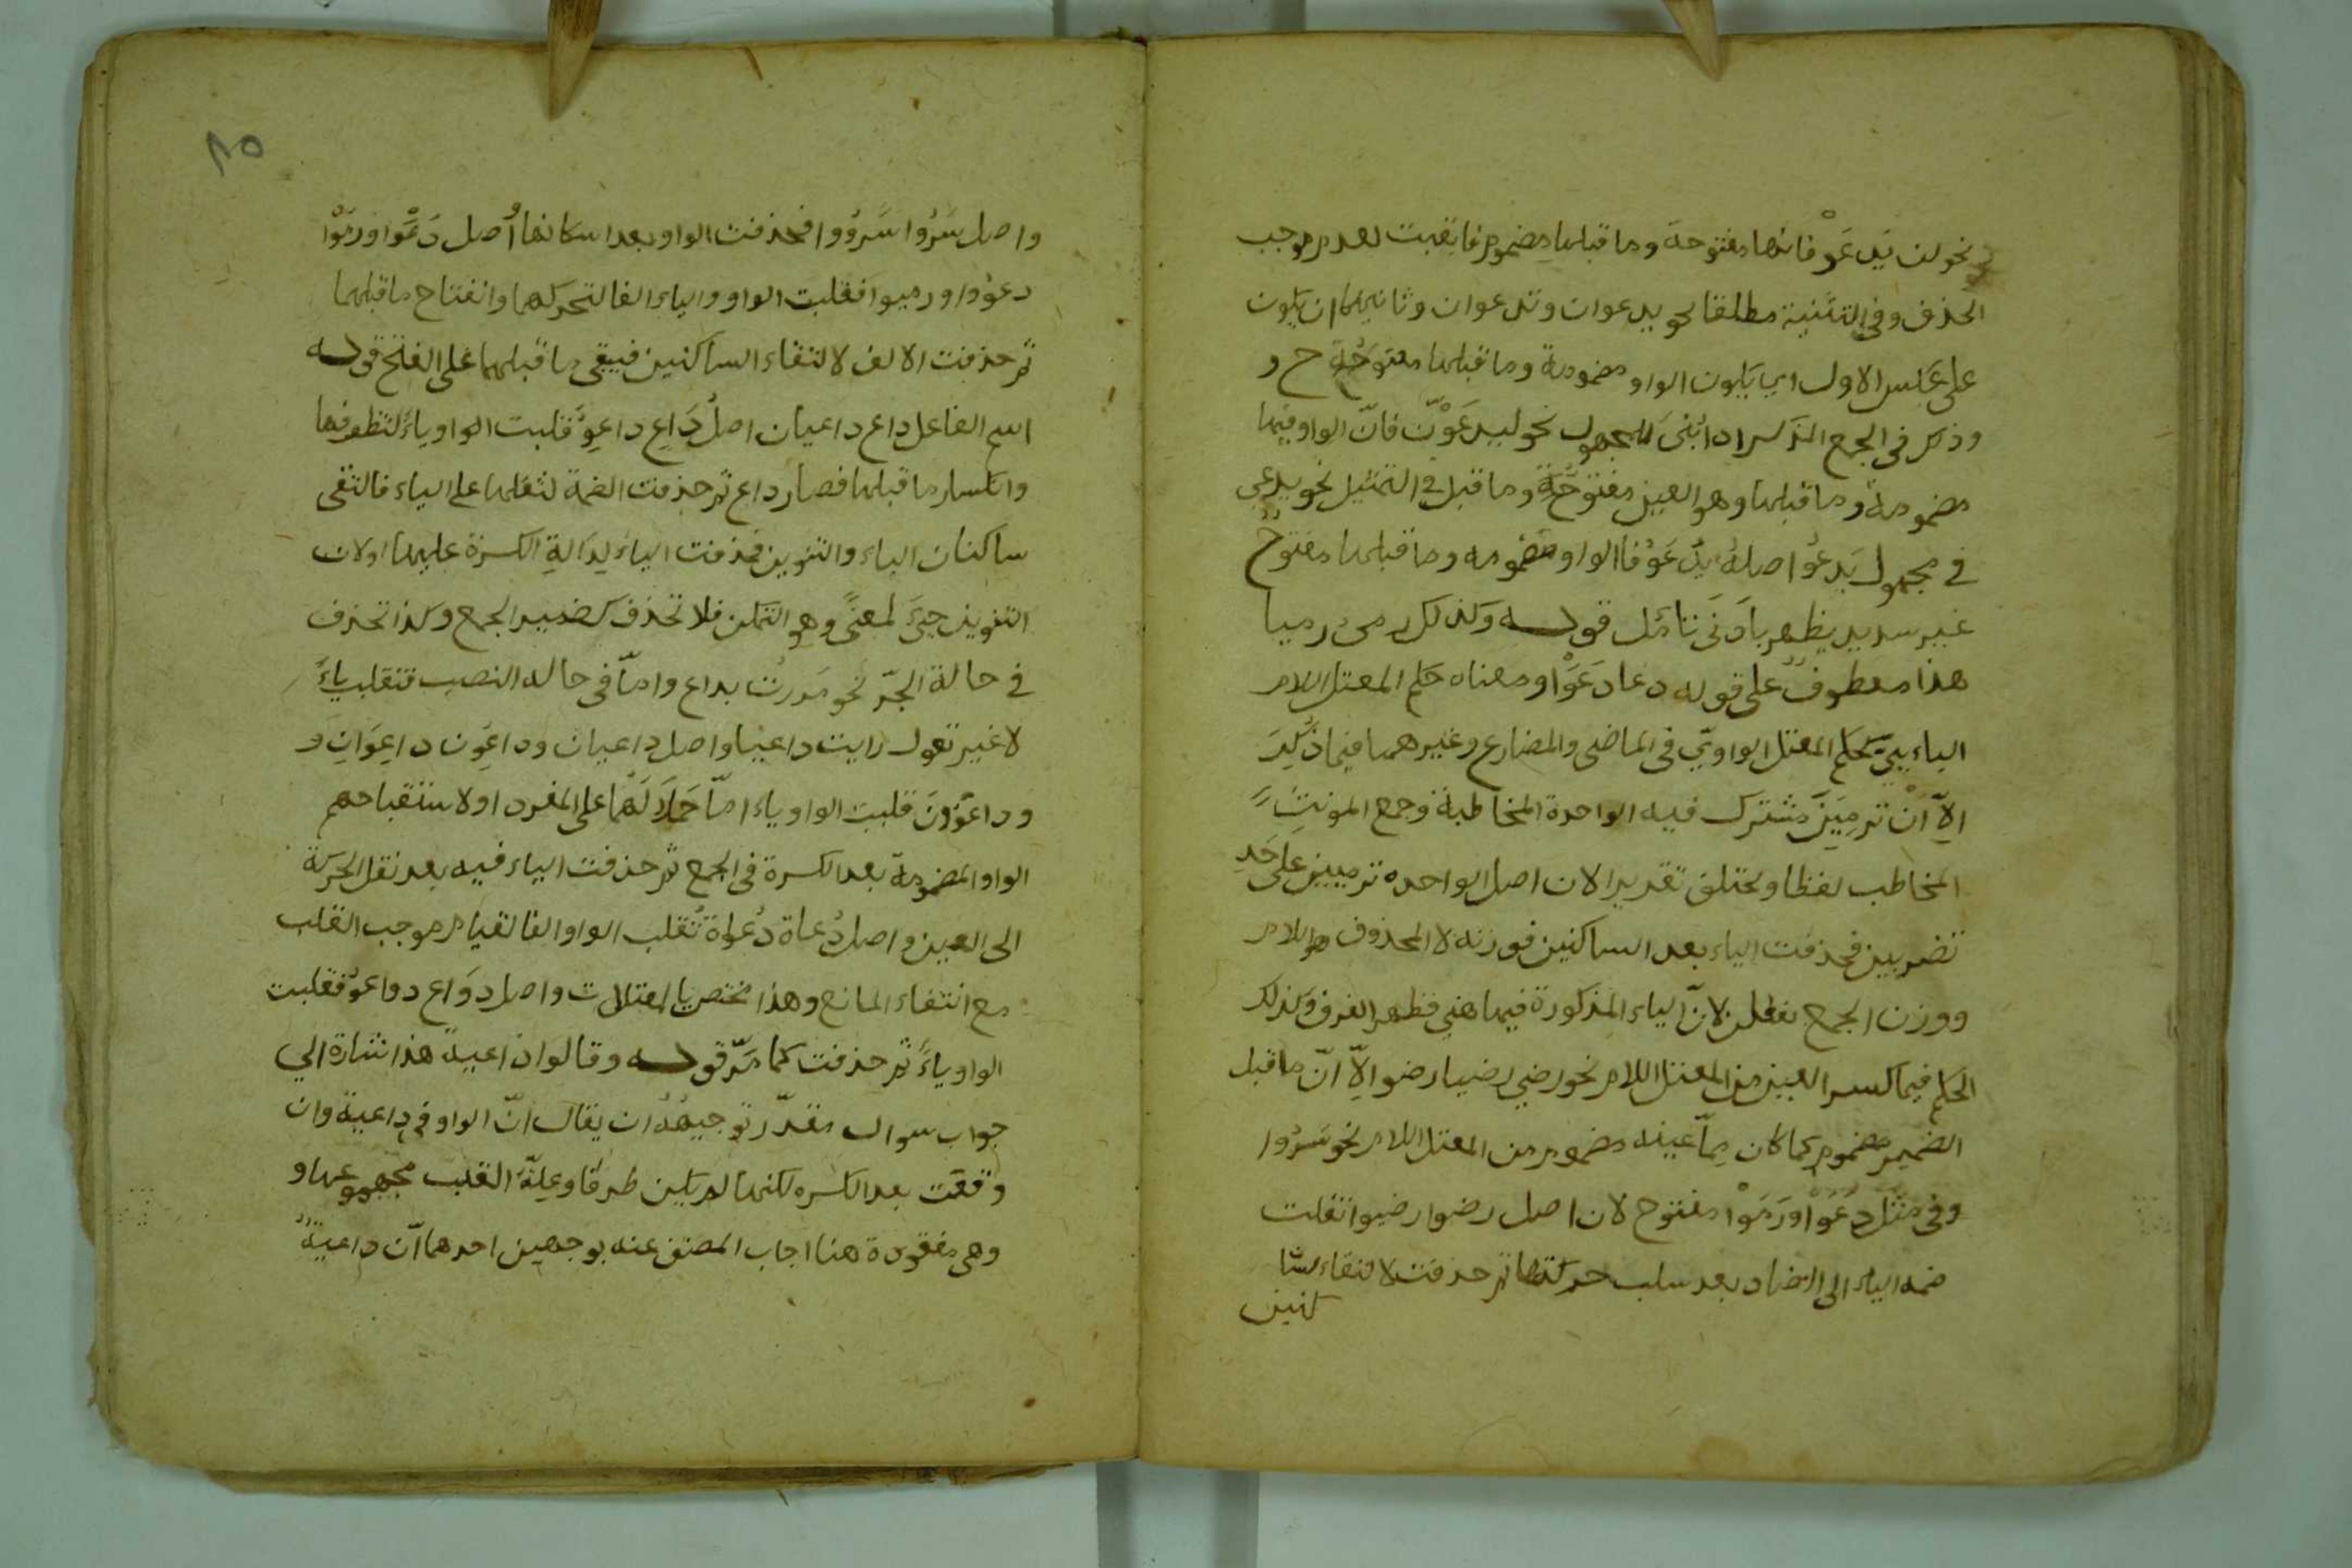 نحو لن يَدعُوَ فانها مفتوحة وما قبلها مضموم فابقيت لعدم موجب
الحذف وفي التثنية مطلقا نحو يدعوان وتدعوان وثانيهما ان يكون
على عكس الاول اي يكون الواو مضمومة وما قبلها مفتوحة ح و
وذكر في الجمع المذكر اذا بُنى للمجهول نحو ليدعَوُنّ فانّ الواو فيها
مضمومة وما قبلها وهو العين مفتوحة وما قيل في التمثيل نحو يدعى
في مجهول يَدعُوا اصله يدعَوُ فالواو مضمومه وما قبلها مفتوح
غير سديد يظهر بادنى تأمّل قوله وكذلك رمى رميا
هذا معطوفٌ على قوله دعا دَعَوَا ومعناه حكم المعتل اللام
اليائيّ كحكم المعتل الواويّ في الماضى والمضارع وغيرهما فيما ذُكِرَ
الاّ اَنْ تَرمِينَ مشترك فيه الواحدة المخاطبة وجمع المونث
المخاطب لفظا ومختلف تقديرا لان اصل الواحده ترميين على حَدِ
تضربين فحذفت الياء بعد الساكنين فوزنه لا المحذوف هو اللام
ووزن الجمع تفعلن لانّ الياء المذكورة فيها هنى فظهر الفرق وكذلك
الحكم فيما كسر العين من المعتل اللام نحو رضى رضيا رضوا الاّ انّ ما قبل
الضمير مضموم كما كان مما عينه مضموم من المعتل اللام نحو سَرُوا
وفي مثل دَعَوْا ورَمَوْا مفتوح لان اصل رضوا رضيوا نقلت
ضمه الياء الى الضاد بعد سلب حركتها ثم حذفت لالتقاء السا
كنين
٨٥
واصل سَرُوا سَرُوُوا فحذفت الواو بعد اسكانها اُصل دَعَوْا ورَمَوْا
دعووا ورميوا فقلبت الواو والياء الفا لتحركهما وانفتاح ما قبلهما
ثم حذفت الالف لالتقاء الساكنين فيبقى ما قبلهما على الفتح قوله
اسم الفاعل داع داعيان اصل دَاعٍ داعِوٌ قلبت الواو ياءً لتطرفها
وانكسار ما قبلها فصار داع ثم حذفت الضمة لثقلها على الياء فالتقى
ساكنان الياء والتنوين فحذفت الياء لِدَلالةِ الكسرة عليها ولان
التنوين جئ لمعنًى وهو التمكن فلا تحذف كضمير الجمع وكذا تحذف
في حالة الجرّ نحو مَررت بداع وامّا في حاله النصب فتقلب ياءً
لا غير تقول رايت داعيا واصل داعيان وداعُون داعِوَانِ و
وداعوُونَ قلبت الواو ياء امّا حَملا لهما على المفرد او لاستثقباحهم
الواو المضمومة بعد الكسرة في الجمع ثم حذفت الياء فيه بعد نقل الحركة
الى العين واصل دُعاة دُعَوة تُقلب الواو الفا لقيام موجب القلب
مع انتفاء المانع وهذا مختص بالمعتلات واصل دوَاع دواعوُ فقلبت
الواو ياءً ثم حذفت كما مَرّ قوله وقالوا داعيةً هذا اشارة الى
جواب سوال مقدّر توجيهُهُ ان يقال انّ الواو في داعية وان
وقعَت بعد الكسره لكنها لم يكن طرفا وعِلّة القلب مجموعهما و
وهى مفقودة هنا اجاب المصنف عنه بوجهين احدهما انّ داعيةً